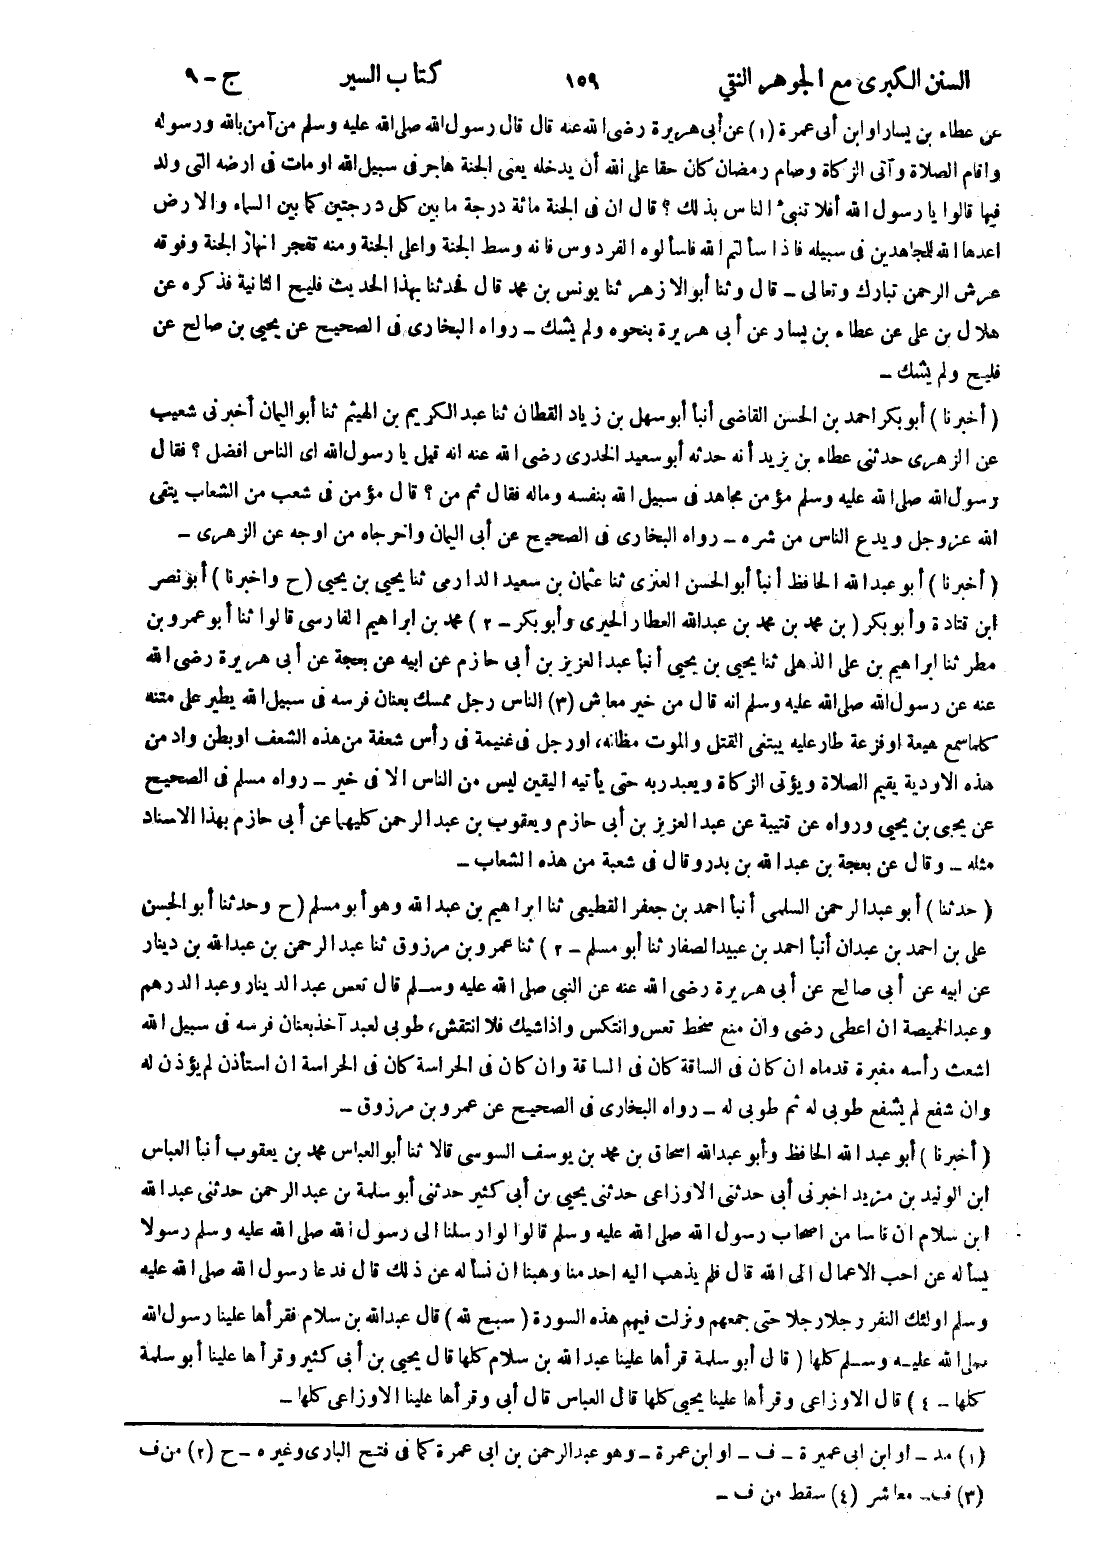 السنن الكبرى مع الجوهر النقي ١٥٩ كتاب السير ج - ٩
عن عطاء بن يسار او ابن أبى عمرة (١) عن أبى هريرة رضى الله عنه قال قال رسول الله صلى الله عليه وسلم من آمن بالله ورسوله
واقام الصلاة وآتى الزكاة وصام رمضان كان حقا على الله أن يدخله يعنى الجنة هاجر فى سبيل الله او مات فى ارضه التى ولد
فيها قالوا يا رسول الله أفلا تنبئ الناس بذلك ؟ قال ان فى الجنة مائة درجة ما بين كل درجتين كما بين السماء والارض
اعدها الله للمجاهدين فى سبيله فاذا سألتم الله فاسألوه الفردوس فانه وسط الجنة واعلى الجنة ومنه تفجر انهار الجنة وفوقه
عرش الرحمن تبارك وتعالى - قال وثنا أبو الازهر ثنا يونس بن محمد قال فحدثنا بهذا الحديث فليح الثانية فذكره عن
هلال بن على عن عطاء بن يسار عن أبى هريرة بنحوه ولم يشك - رواه البخارى فى الصحيح عن يحيى بن صالح عن
فليح ولم يشك -
( أخبرنا ) أبو بكر احمد بن الحسن القاضى أنبأ أبو سهل بن زياد القطان ثنا عبد الكريم بن الهيثم ثنا أبو اليمان أخبرنى شعيب
عن الزهرى حدثنى عطاء بن يزيد أنه حدثه أبو سعيد الخدرى رضى الله عنه انه قيل يا رسول الله اى الناس افضل ؟ فقال
رسول الله صلى الله عليه وسلم مؤمن مجاهد فى سبيل الله بنفسه وماله فقال ثم من ؟ قال مؤمن فى شعب من الشعاب يتقى
الله عز وجل ويدع الناس من شره - رواه البخارى فى الصحيح عن أبى اليمان واخرجاه من اوجه عن الزهرى -
( أخبرنا ) أبو عبد الله الحافظ أنبأ أبو الحسن العنزى ثنا عثمان بن سعيد الدارمى ثنا يحيى بن يحيى ( ح واخبرنا ) أبو نصر
ابن قتادة وأبو بكر ( بن محمد بن محمد بن عبدالله العطار الحيرى وأبو بكر - ٢ ) محمد بن ابراهيم الفارسى قالوا ثنا أبو عمرو بن
مطر ثنا ابراهيم بن على الذهلى ثنا يحيى بن يحيى أنبأ عبد العزيز بن أبى حازم عن ابيه عن بعجة عن أبى هريرة رضى الله
عنه عن رسول الله صلى الله عليه وسلم انه قال من خير معاش (٣) الناس رجل ممسك بعنان فرسه فى سبيل الله يطير على متنه
كلما سمع هيعة او فزعة طار عليه يبتغى القتل والموت مظانه، او رجل فى غنيمة فى رأس شعفة من هذه الشعف او بطن واد من
هذه الاودية يقيم الصلاة ويؤتى الزكاة ويعبد ربه حتى يأتيه اليقين ليس من الناس الا فى خير - رواه مسلم فى الصحيح
عن يحيى بن يحيى ورواه عن قتيبة عن عبد العزيز بن أبى حازم ويعقوب بن عبد الرحمن كليهما عن أبى حازم بهذا الاسناد
مثله - وقال عن بعجة بن عبد الله بن بدر وقال فى شعبة من هذه الشعاب -
( حدثنا ) أبو عبد الرحمن السلمى أنبأ احمد بن جعفر القطيعى ثنا ابراهيم بن عبد الله وهو أبو مسلم ( ح وحدثنا أبو الحسن
على بن احمد بن عبدان أنبأ احمد بن عبيد الصفار ثنا أبو مسلم - ٢ ) ثنا عمرو بن مرزوق ثنا عبد الرحمن بن عبدالله بن دينار
عن ابيه عن أبى صالح عن أبى هريرة رضى الله عنه عن النبى صلى الله عليه وسلم قال تعس عبد الدينار وعبد الدرهم
وعبد الخميصة ان اعطى رضى وان منع سخط تعس وانتكس واذا شيك فلا انتقش، طوبى لعبد آخذ بعنان فرسه فى سبيل الله
اشعث رأسه مغبرة قدماه ان كان فى الساقة كان فى الساقة وان كان فى الحراسة كان فى الحراسة ان استأذن لم يؤذن له
وان شفع لم يشفع طوبى له ثم طوبى له - رواه البخارى فى الصحيح عن عمرو بن مرزوق -
( أخبرنا ) أبو عبد الله الحافظ وأبو عبدالله اسحاق بن محمد بن يوسف السوسى قالا ثنا أبو العباس محمد بن يعقوب أنبأ العباس
ابن الوليد بن مزيد اخبرنى أبى حدثنى الاوزاعى حدثنى يحيى بن أبى كثير حدثنى أبو سلمة بن عبد الرحمن حدثنى عبد الله
ابن سلام ان ناسا من اصحاب رسول الله صلى الله عليه وسلم قالوا لو ارسلنا الى رسول الله صلى الله عليه وسلم رسولا
يسأله عن احب الاعمال الى الله قال فلم يذهب اليه احد منا وهبنا ان نسأله عن ذلك قال فدعا رسول الله صلى الله عليه
وسلم اولئك النفر رجلا رجلا حتى جمعهم ونزلت فيهم هذه السورة ( سبح لله ) قال عبدالله بن سلام فقرأها علينا رسول الله
صلى الله عليه وسلم كلها ( قال أبو سلمة قرأها علينا عبد الله بن سلام كلها قال يحيى بن أبى كثير وقرأها علينا أبو سلمة
كلها - ٤ ) قال الاوزاعى وقرأها علينا يحيى كلها قال العباس قال أبى وقرأها علينا الاوزاعى كلها -
(١) مد - او ابن ابى عميرة - ف - او ابن عمرة - وهو عبدالرحمن بن ابى عمرة كما فى فتح البارى وغيره - ح (٢) من ف
(٣) ف - معاشر (٤) سقط من ف -